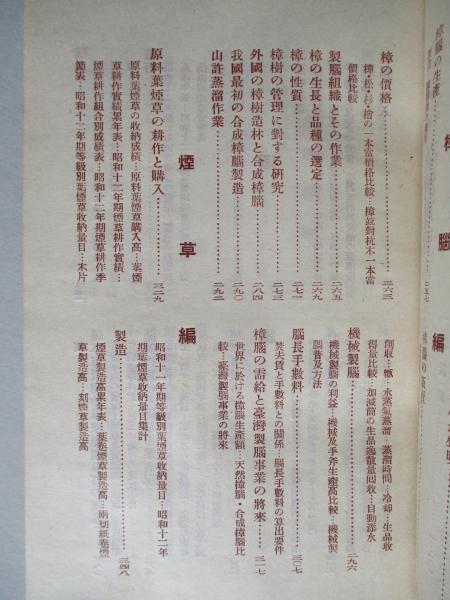 樟腦の生産
樟腦編
樟の價格……二六三
樟・松・杉・檜の一本當價格比較…樟並對杭木一本當
價格比較
製腦組織とその作業……二六五
樟の生長と品種の選定……二六九
樟の性質……二七一
樟樹の管理に對する研究……二七三
外國の樟樹造林と合成樟腦……二八四
我國最初の合成樟腦製造……二九〇
山許蒸溜作業……二九二
削取…甑…水蒸氣蒸溜…蒸溜時間…冷却…生品收
得量比較…加減筒の生品逸散量回收…自動添水
機械製腦……二九六
機械製腦の利益…機械及手斧生產高比較…機械製
腦普及方法
腦長手數料……三〇七
焚夫賃と手數料との關係…腦長手數料の算出要件
樟腦の需給と臺灣製腦事業の將來……三一七
世界に於ける樟腦生產額…天然樟腦・合成樟腦比
較…臺灣製腦事業の將來
煙草編
原料葉煙草の耕作と購入……三二九
原料葉煙草の收納成績…原料葉煙草購入高…葉煙
草耕作實績累年表…昭和十二年期煙草耕作實績…
煙草耕作組合別成績表…昭和十二年期煙草耕作季
節表…昭和十二年期等級別葉煙草收納量目…木片
昭和十一年期等級別葉煙草收納量目…昭和十二年
期葉煙草收納量目集計
製造……三四八
煙草製造高累年表…葉卷煙草製造高…兩切紙卷煙
草製造高…刻煙草製造高